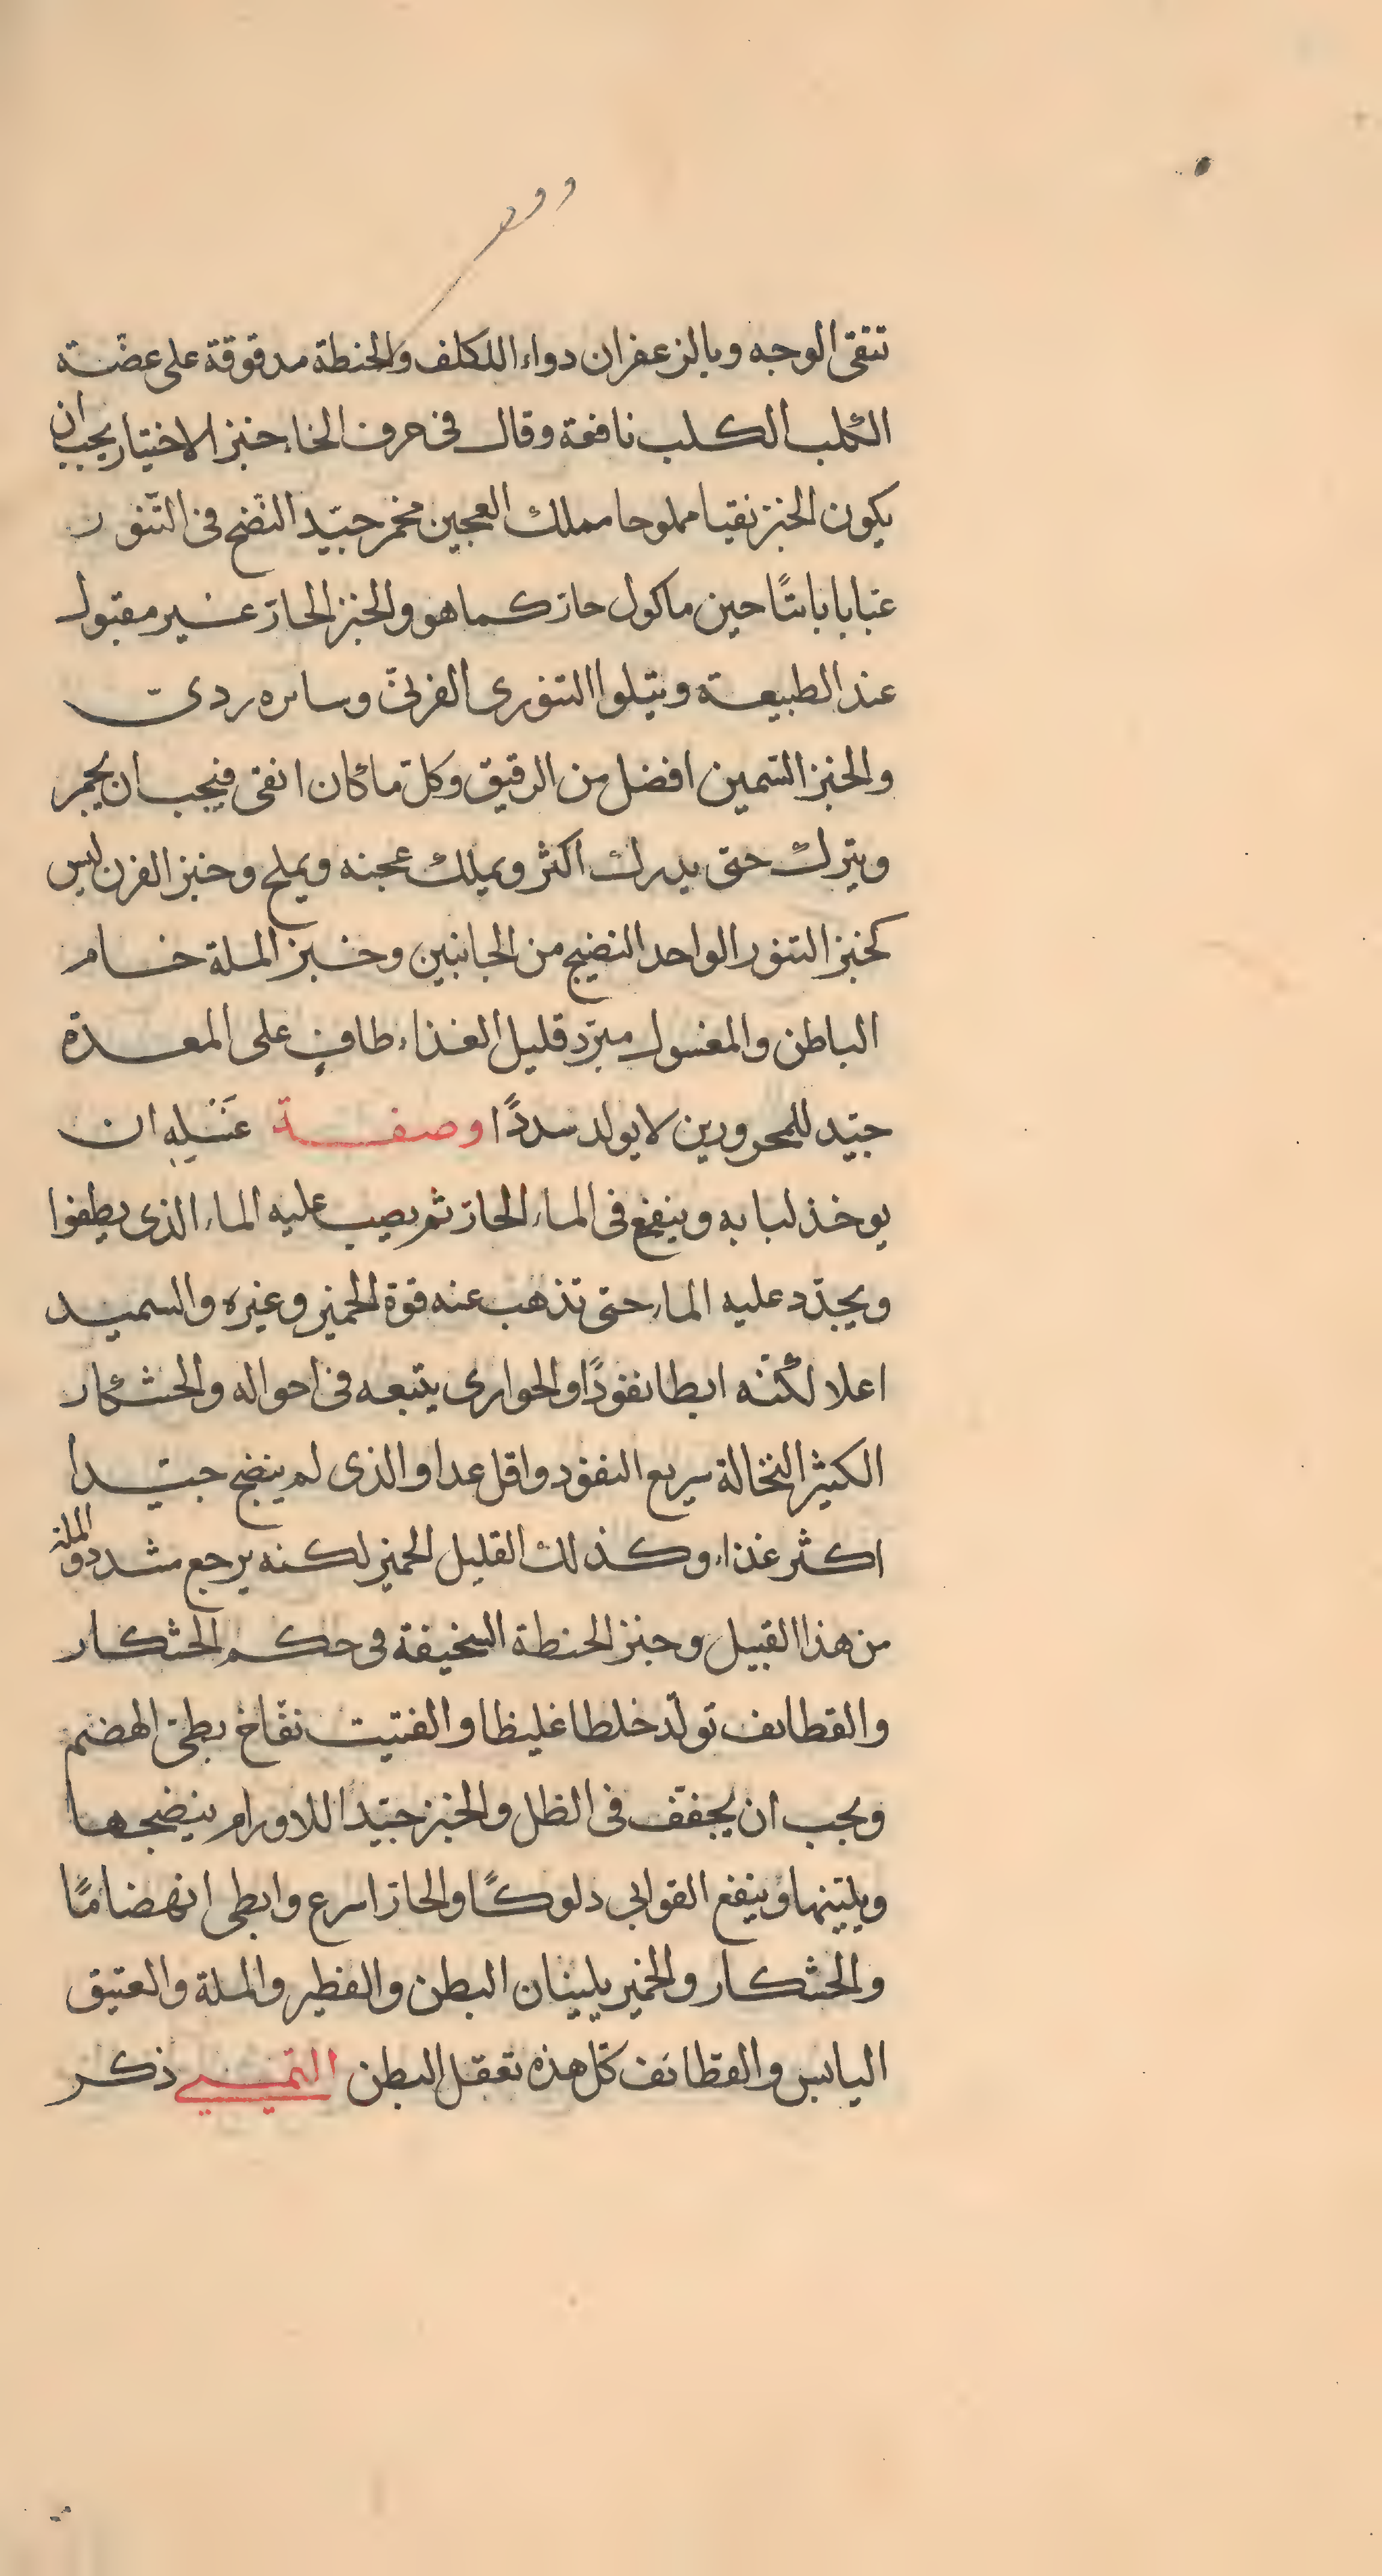 تنقى الوجه وبالزعفران دواء اللكلف والحنطة مدقوقة على عضة
الكلب الكلب نافعة وقال فى حرف الخاء خبز الاختيار يجب ان
يكون الخبز نقيا مملوحا مملك العجين مخمر جيّد النضج فى التنّور
غبابا بائتًا حين ماكول حارّ كما هو والخبز الحارّ غير مقبول
عند الطبيعة ويتلوا التنورى الفرنىّ وسائره ردىّ
والخبز السّمين افضل من الرقيق وكلّ ما كان انقى فيجب ان يخمر
ويترك حتى يدرك اكثر ويملك عجنه ويملح وخبز الفرن ليس
كخبز التنور الواحد النضيج من الجانبين وخبز الملة خام
الباطن والمغسول مبرّد قليل الغذاء طافٍ على المعدة
جيّد للمحرورين لا يولد سددًا وصفة غَسْلِهِ ان
يوخذ لبابه وينقع فى الماء الحارّ ثم يصب عليه الماء الذى يطفوا
ويجدّد عليه الماء حتى تذهب عنه قوة الخمير وغيره والسميد
اعلا لكنّه ابطا نفودًا والحوارى يتبعه فى احواله والخشكار
الكثير النخالة سريع النفود واقل عدا والذى لم ينضج جيّدا
اكثر غذاء وكذلك القليل الخمير لكنه يرجع مشدد والملة
من هذا القبيل وخبز الحنطة السخيفة فى حكم الخشكار
والقطائف تولّد خلطا غليظا والفتيت نفّاخ بطئ الهضم
ويجب ان يجفف فى الظل والخبز جيّدًا للاورام ينضجها
ويليّنها وينفع القوابى دلوكًا والحارّ اسرع وابطى انهضامًا
والخشكار والخمير يلينان البطن والفطير والملة والعتيق
اليابس والقطائف كلّ هذه تعقل البطن التميمى ذكر